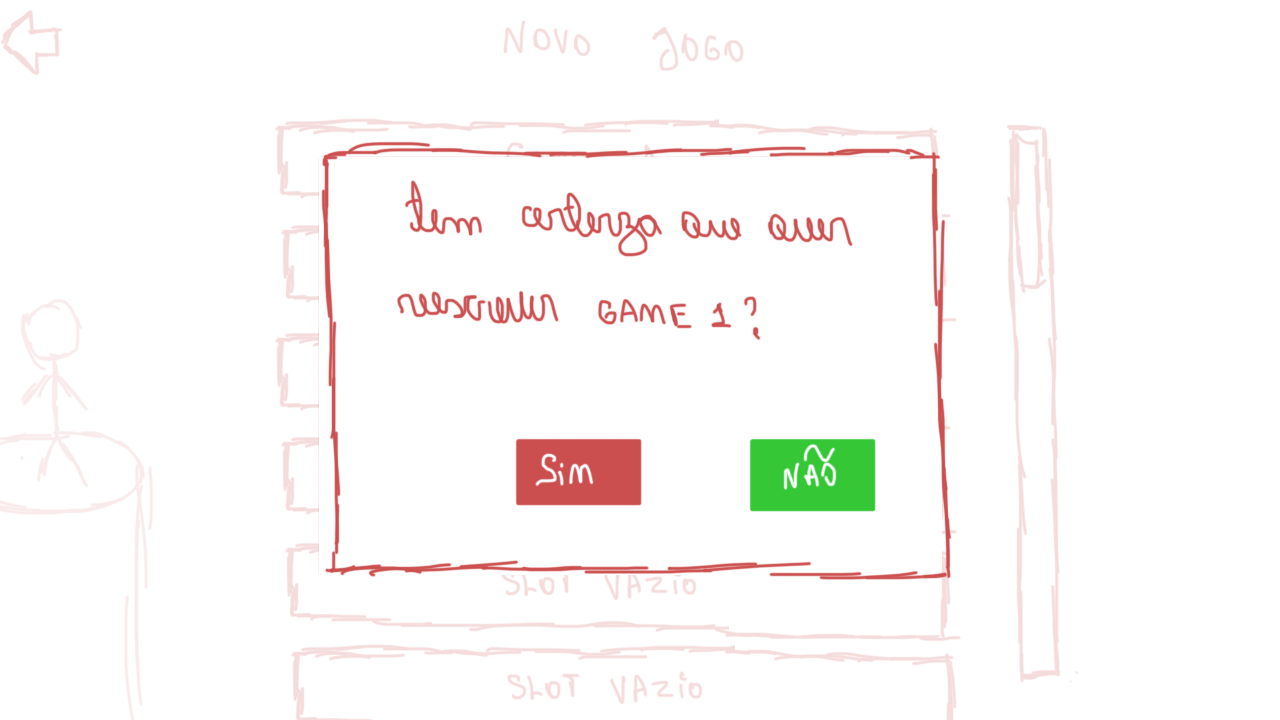 NOVO JOGO
tem certerza que quer
reescrever GAME 1?
Sim
NÃO
SLOT VAZiO
SLOT VAZiO